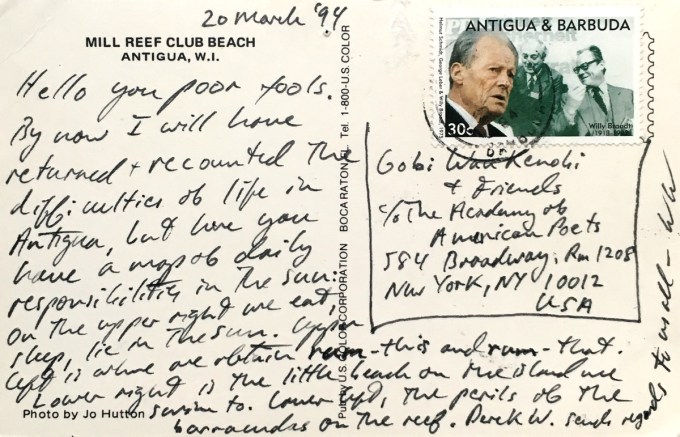 20 March '94
MILL REEF CLUB BEACH
ANTIGUA, W.I.
Hello you poor fools.
By now I will have
returned + recounted the
difficulties of life in
Antigua, but here you
have a map of daily
responsibilities in the sun:
on the upper right we eat,
sleep, lie in the sun. Upper
left is where we obtain rum-this and rum-that.
Lower right is the little beach on the island we
swim to. Lower left, the perils of the
barracudas on the reef. Derek W. sends regards to us all – WW
Photo by Jo Hutton
Pub by U.S. COLOR CORPORATION BOCA RATON, FL Tel. 1-800-U.S. COLOR
ANTIGUA & BARBUDA
Helmut Schmidt, George Leber & Willy Brandt,
30c
Willy Brandt
Gobi Wan Kenobi
+ Friends
c/o The Academy of
American Poets
584 Broadway, Rm 1208
New York, NY 10012
USA